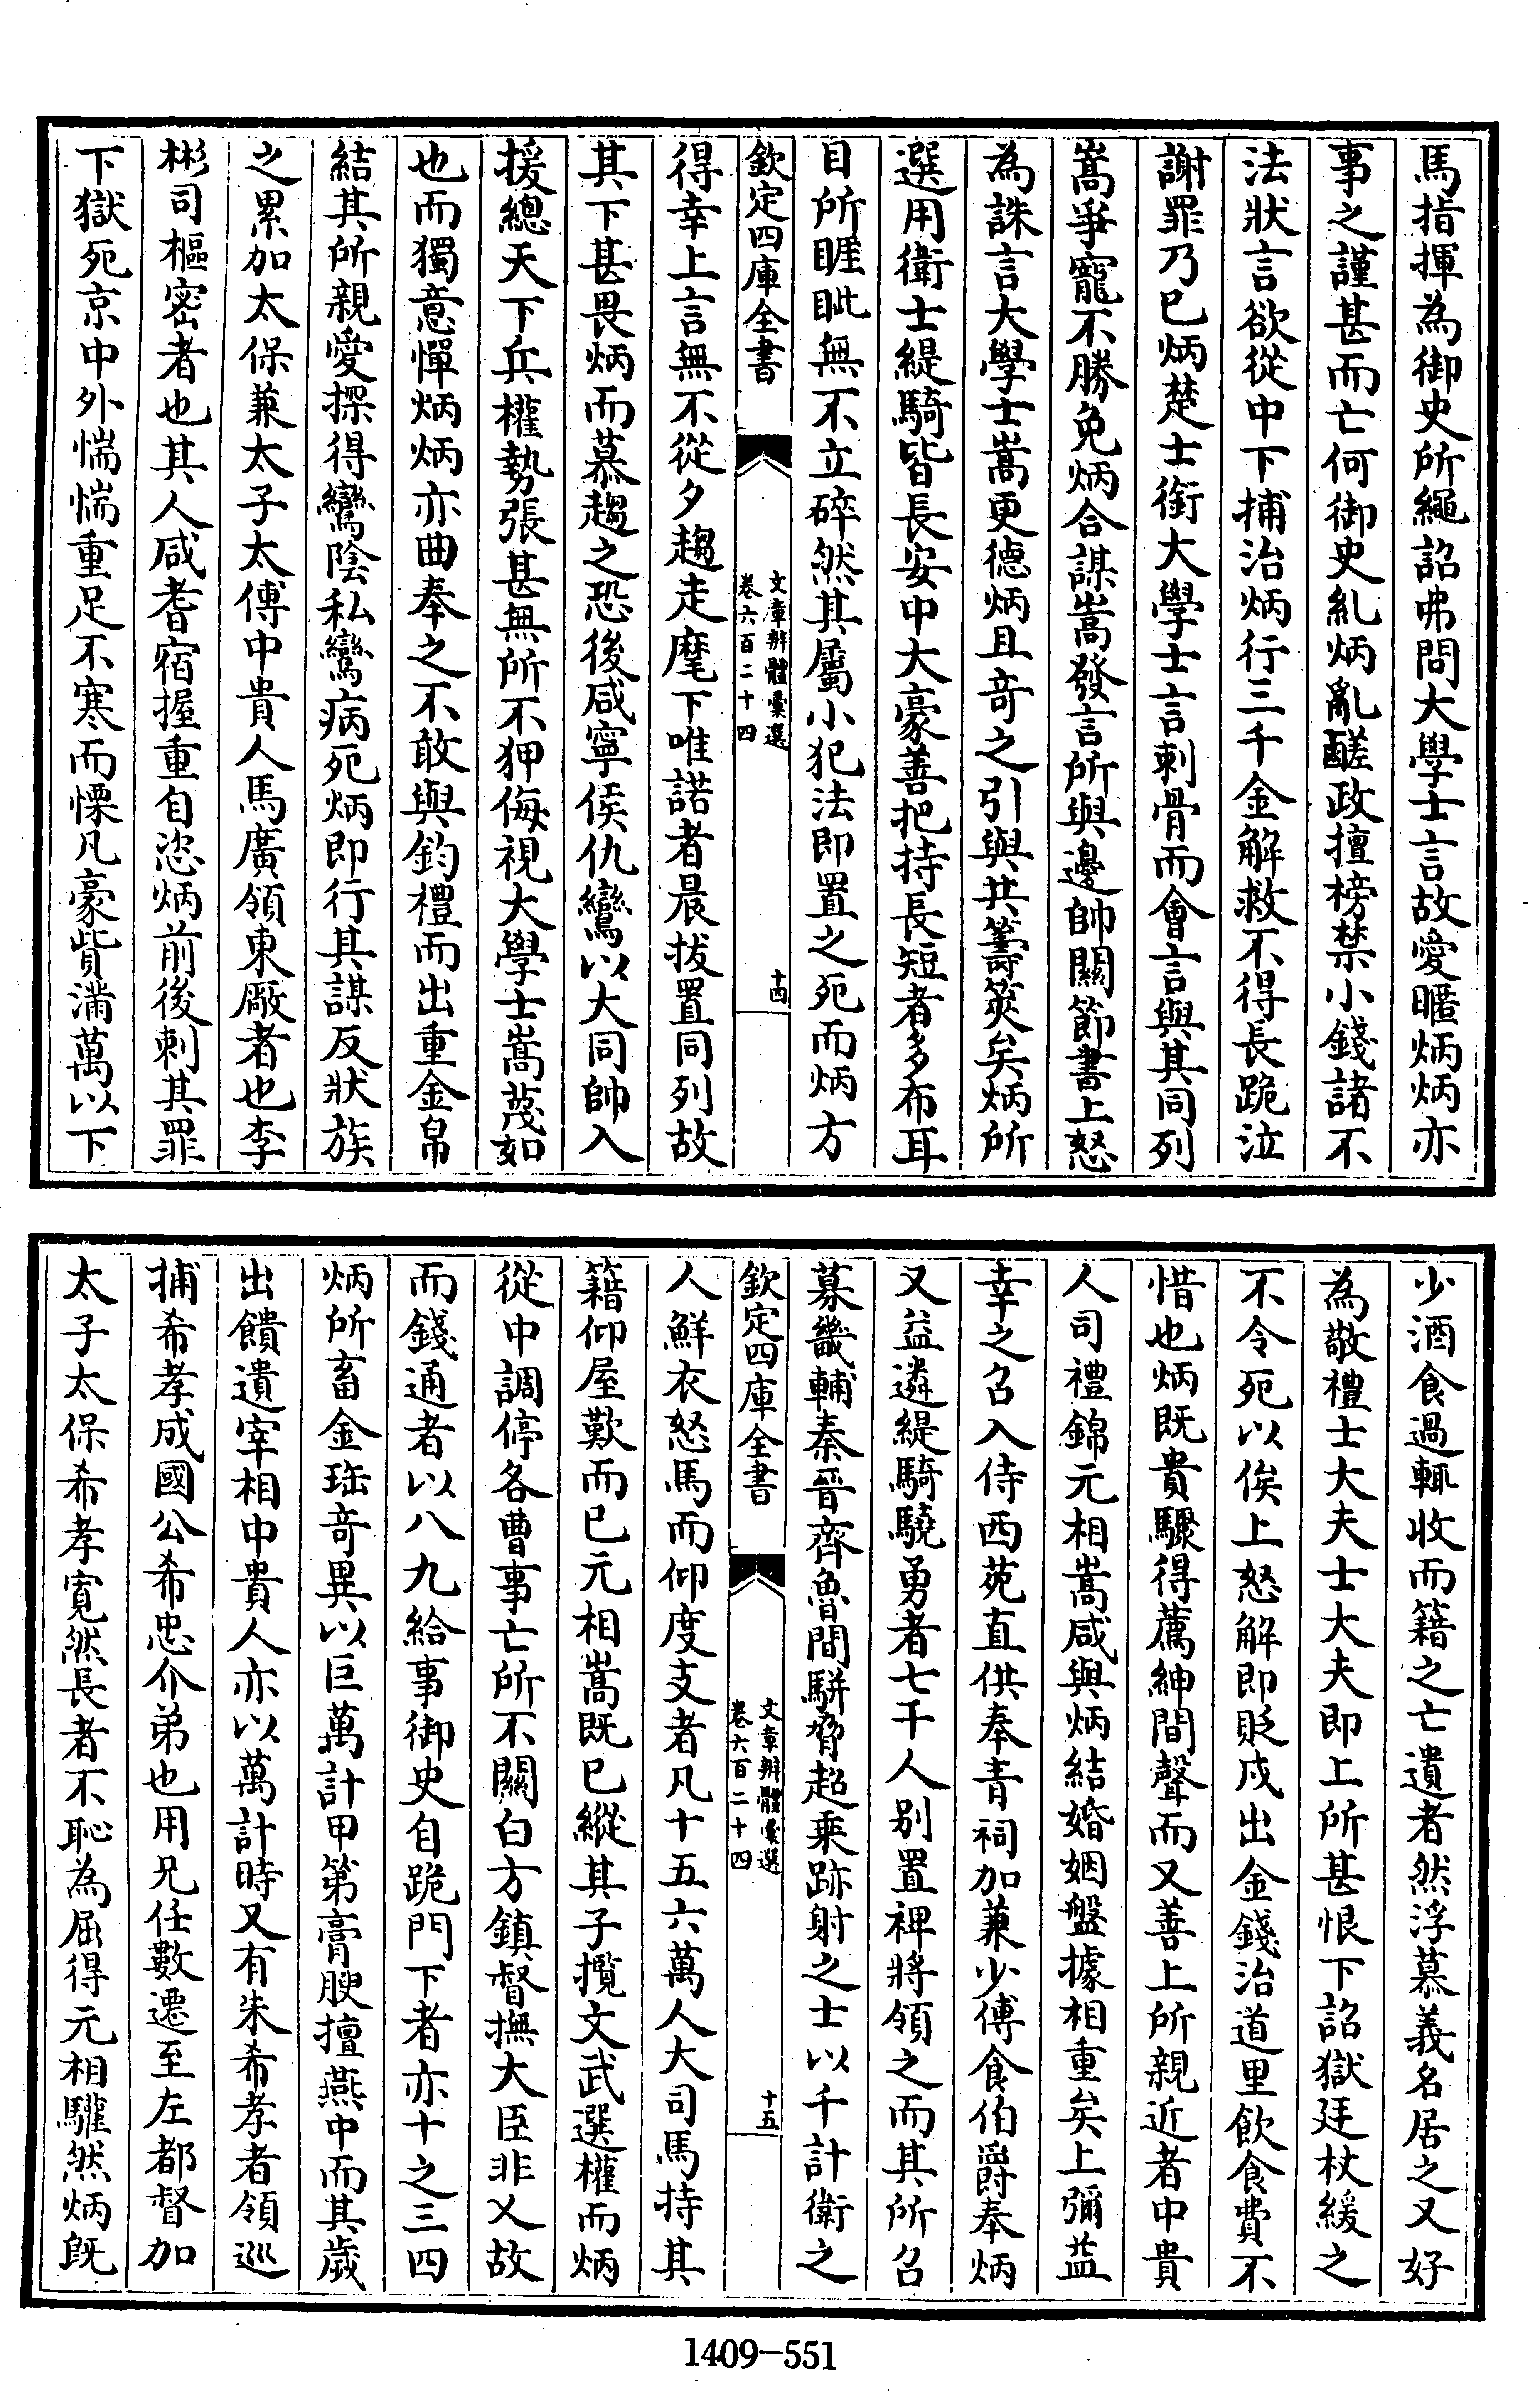 馬指揮為御史所繩詔弗問大學士言故愛暱炳炳亦
事之謹甚而亡何御史糺炳亂鹺政擅榜禁小錢諸不
法狀言欲從中下捕治炳行三千金解救不得長跪泣
謝罪乃已炳楚士銜大學士言刺骨而會言與其同列
嵩爭寵不勝免炳合謀嵩發言所與邊帥關節書上怒
為誅言大學士嵩更德炳且竒之引與共籌筴矣炳所
選用衛士緹騎皆長安中大豪善把持長短者多布耳
目所睚眦無不立碎然其屬小犯法即置之死而炳方
欽定四庫全書
文章辨體彙選
卷六百二十四
十四
得幸上言無不從夕趨走麾下唯諾者晨拔置同列故
其下甚畏炳而慕趨之恐後咸寧侯仇鸞以大同帥入
援總天下兵權勢張甚無所不狎侮視大學士嵩蔑如
也而獨意憚炳炳亦曲奉之不敢與鈞禮而出重金帛
結其所親愛探得鸞陰私鸞病死炳即行其謀反狀族
之累加太保兼太子太傅中貴人馬廣領東厰者也李
彬司樞密者也其人咸耆宿握重自恣炳前後刺其罪
下獄死京中外惴惴重足不寒而慄凡豪貲滿萬以下
少酒食過輒收而籍之亡遺者然浮慕義名居之又好
為敬禮士大夫士大夫即上所甚恨下詔獄廷杖緩之
不令死以俟上怒解即貶戍出金錢治道里飲食費不
惜也炳既貴驟得薦紳間聲而又善上所親近者中貴
人司禮錦元相嵩咸與炳結婚姻盤據相重矣上彌益
幸之召入侍西苑直供奉青祠加兼少傅食伯爵奉炳
又益遴緹騎驍勇者七千人别置裨將領之而其所召
募畿輔秦晉齊魯間駢脅超乘跡射之士以千計衛之
欽定四庫全書
文章辨體彙選
卷六百二十四
十五
人鮮衣怒馬而仰度支者凡十五六萬人大司馬持其
籍仰屋歎而已元相嵩既已縱其子攬文武選權而炳
從中調停各曹事亡所不關白方鎮督撫大臣非乂故
而錢通者以八九給事御史自跪門下者亦十之三四
炳所畜金珤竒異以巨萬計甲第膏腴擅燕中而其歲
出饋遺宰相中貴人亦以萬計時又有朱希孝者領巡
捕希孝成國公希忠介弟也用兄任數遷至左都督加
太子太保希孝寛然長者不恥為屈得元相驩然炳既
1409-551